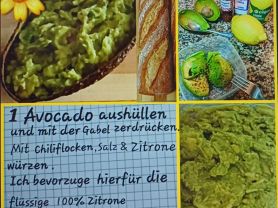 1 Avocado aushüllen
und mit der Gabel zerdrücken.
Mit Chiliflocken, Salz & Zitrone
würzen.
Ich bevorzuge hierfür die
flüssige 100% Zitrone